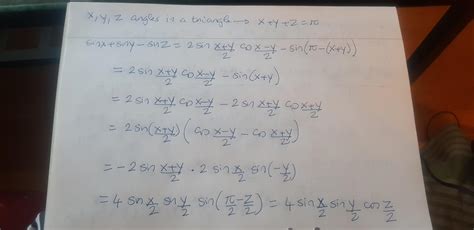 x,y,z angles in a triangle → x+y+z=π
sinx+siny-sinz = 2 sin (x+y)/2 co (x-y)/2 - sin(π-(x+y))
= 2 sin (x+y)/2 co (x-y)/2 - sin(x+y)
= 2 sin (x+y)/2 co (x-y)/2 - 2 sin (x+y)/2 co (x+y)/2
= 2 sin (x+y)/2 ( co (x-y)/2 - co (x+y)/2 )
= -2 sin (x+y)/2 · 2 sin x/2 sin(-y/2)
= 4 sin x/2 sin y/2 sin(π/2 - z/2) = 4 sin x/2 sin y/2 cos z/2